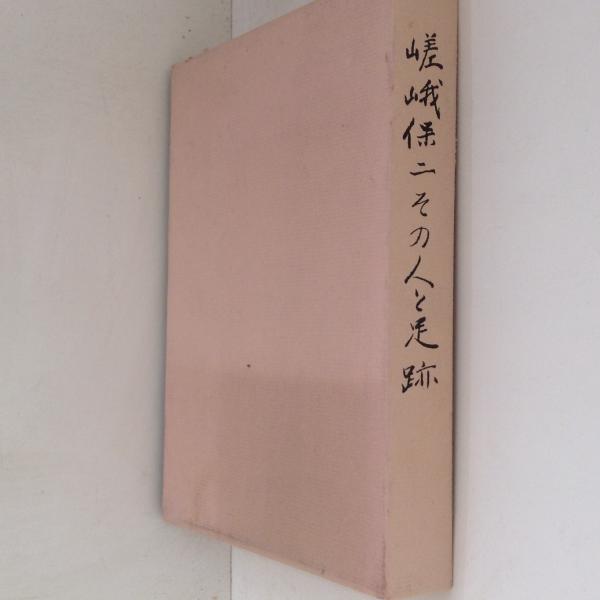 嵯峨保二その人と足跡